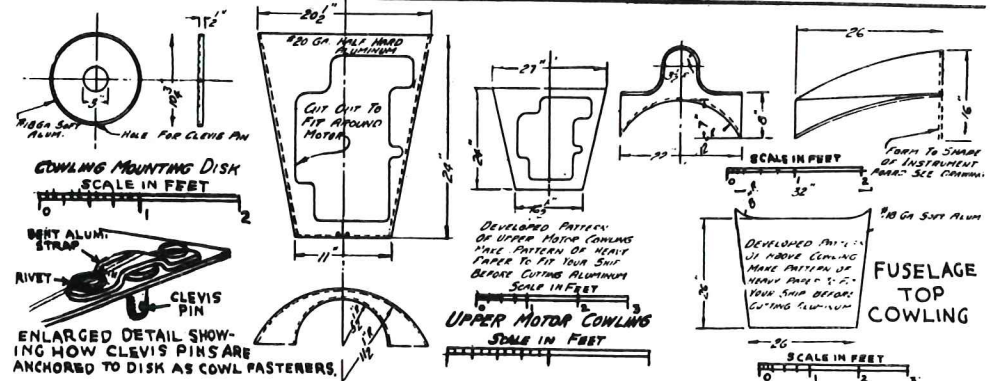 2"
5"
#18 GA SOFT
ALUM.
HOLE FOR CLEVIS PIN
COWLING MOUNTING DISK
SCALE IN FEET
0 1 2
BENT ALUM.
STRAP
RIVET
CLEVIS
PIN
ENLARGED DETAIL SHOW-
ING HOW CLEVIS PINS ARE
ANCHORED TO DISK AS COWL FASTENERS.
20½"
#20 GA. HALF HARD
ALUMINUM
CUT OUT TO
FIT AROUND
MOTOR
24"
11"
27"
24"
DEVELOPED PATTERN
OF UPPER MOTOR COWLING
MAKE PATTERN OF HEAVY
PAPER TO FIT YOUR SHIP
BEFORE CUTTING ALUMINUM
SCALE IN FEET
0 1 2 3
UPPER MOTOR COWLING
SCALE IN FEET
22
8"
26
16"
FORM TO SHAPE
OF INSTRUMENT
BOARD SEE DRAWING
SCALE IN FEET
0 1 2
32"
#18 GA SOFT ALUM
DEVELOPED PATTERN
OF ABOVE COWLING
MAKE PATTERN OF
HEAVY PAPER TO FIT
YOUR SHIP BEFORE
CUTTING ALUMINUM
26"
26
FUSELAGE
TOP
COWLING
SCALE IN FEET
0 1 2 3